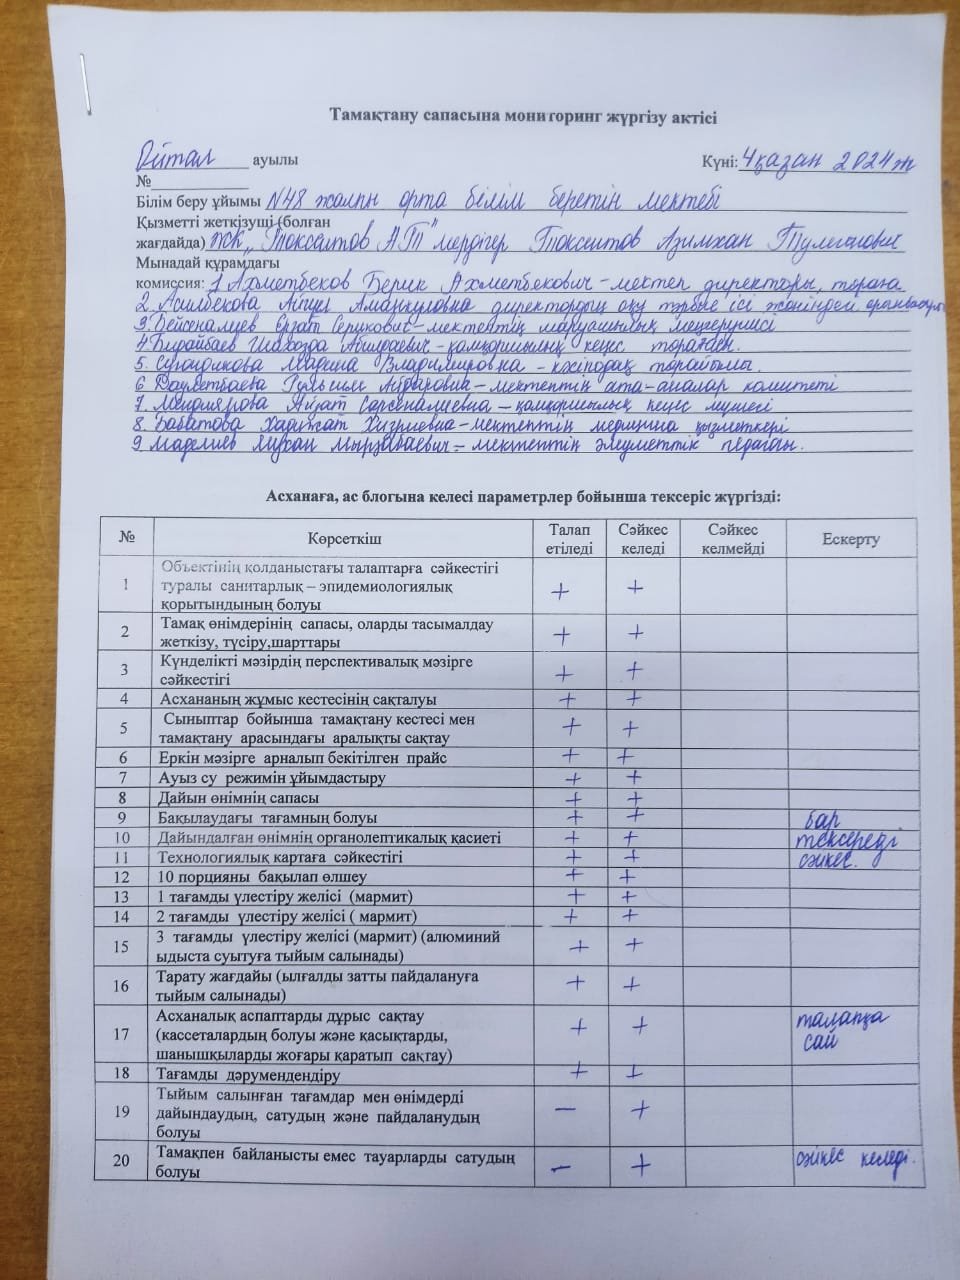 Тамақтану сапасына мониторинг жүргізу актісі
Ойтал ауылы Күні: 4 қазан 2024ж
№
Білім беру ұйымы N48 жалпы орта білім беретін мектебі
Қызметті жеткізуші (болған
жағдайда) ЖК „Токсаитов АТ" мердігер Токсеитов Азимхан Тулегенович
Мынадай құрамдағы
комиссия: 1 Ахметбеков Берик Ахметбекович – мектеп директоры, төраға
2. Асилбекова Айгул Аманкуловна директордың оқу тәрбие ісі жөніндегі орынбасары
3. Бейсеналиев Ерғат Серикович – мектептің шаруашылық меңгерушісі
4. Бирайбаев Шахозда Абилдаевич – қамқоршылық кеңес төрағасы.
5. Владимировна – кәсіподақ төрайымы.
6 Даулетбаева Гульсим Айдаровна – мектептің ата-аналар комитеті
7. Айзат Сарсеналиевна – қамқоршылық кеңес мүшесі
8. Бабатова Хадижат – мектептің медицина қызметкері
9. Маделиев Алихан Мырзабаевич – мектептің әлеуметтік педагогы.
Асханаға, ас блогына келесі параметрлер бойынша тексеріс жүргізді:
№ Көрсеткіш Талап етіледі Сәйкес келеді Сәйкес келмейді Ескерту
1 Объектінің қолданыстағы талаптарға сәйкестігі
туралы санитарлық – эпидемиологиялық + +
қорытындының болуы
2 Тамақ өнімдерінің сапасы, оларды тасымалдау + +
жеткізу, түсіру,шарттары
3 Күнделікті мәзірдің перспективалық мәзірге + +
сәйкестігі
4 Асхананың жұмыс кестесінің сақталуы + +
5 Сыныптар бойынша тамақтану кестесі мен + +
тамақтану арасындағы аралықты сақтау
6 Еркін мәзірге арналып бекітілген прайс + +
7 Ауыз су режимін ұйымдастыру + +
8 Дайын өнімнің сапасы + +
9 Бақылаудағы тағамның болуы + + бар
10 Дайындалған өнімнің органолептикалық қасиеті + + тексереді
11 Технологиялық картаға сәйкестігі + + сәйкес.
12 10 порцияны бақылап өлшеу + +
13 1 тағамды үлестіру желісі (мармит) + +
14 2 тағамды үлестіру желісі ( мармит) + +
15 3 тағамды үлестіру желісі (мармит) (алюминий + +
ыдыста суытуға тыйым салынады)
16 Тарату жағдайы (ылғалды затты пайдалануға + +
тыйым салынады)
17 Асханалық аспаптарды дұрыс сақтау + + талапқа
(кассеталардың болуы және қасықтарды, сай
шанышқыларды жоғары қаратып сақтау)
18 Тағамды дәрумендендіру + +
19 Тыйым салынған тағамдар мен өнімдерді
дайындаудың, сатудың және пайдаланудың – +
болуы
20 Тамақпен байланысты емес тауарларды сатудың – + сәйкес келеді.
болуы